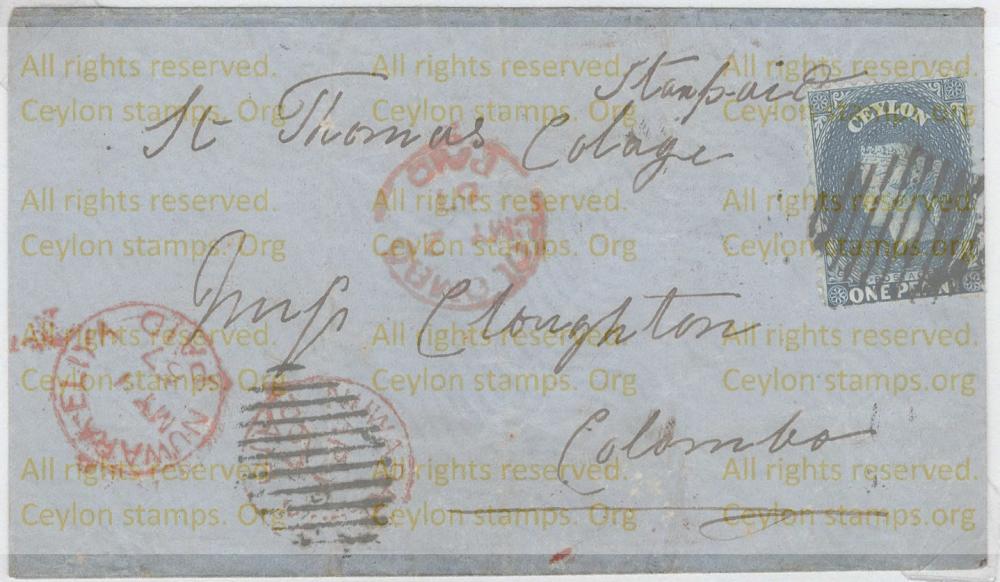 All rights reserved. All rights reserved. All rights reserved.
Stampaid
Ceylon stamps. Org Ceylon stamps. Org Ceylon stamps. Org
CEYLON
St Thomas Colage
COLOMBO
PAID
MY
All rights reserved. All rights reserved. All rights reserved.
Ceylon stamps. Org Ceylon stamps. Org Ceylon stamps. Org
POSTAGE
ONE PENNY
Miss Cloughton
All rights reserved. All rights reserved. All rights reserved.
NUWARA ELIYA
PAID
MY
Ceylon stamps. Org Ceylon stamps. Org Ceylon stamps. Org
Colombo
All rights reserved. All rights reserved. All rights reserved.
Ceylon stamps. Org Ceylon stamps. Org Ceylon stamps. Org